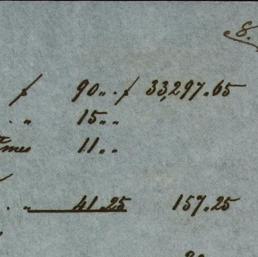 8.
f 90.. . f 33,297.65
. " 15..
Times 11..
. " 41.25 157.25